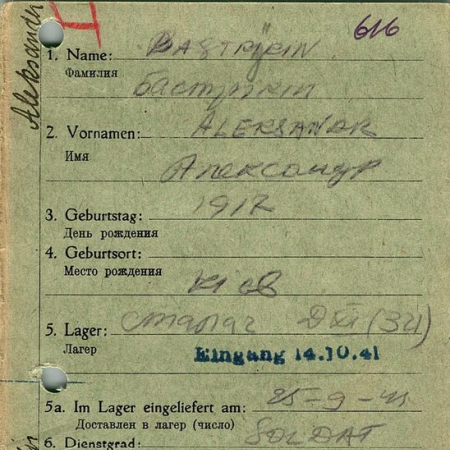 Aleksandr
616
1. Name: BASTRYKIN
Фамилия
Бастрикин
2. Vornamen: ALEKSANDR
Имя
Александр
3. Geburtstag: 1912
День рождения
4. Geburtsort:
Место рождения
Kiев
5. Lager: сталаг XI D (321)
Лагер
Eingang 14.10.41
5a. Im Lager eingeliefert am: 25-9-41
Доставлен в лагер (число)
6. Dienstgrad: SOLDAT